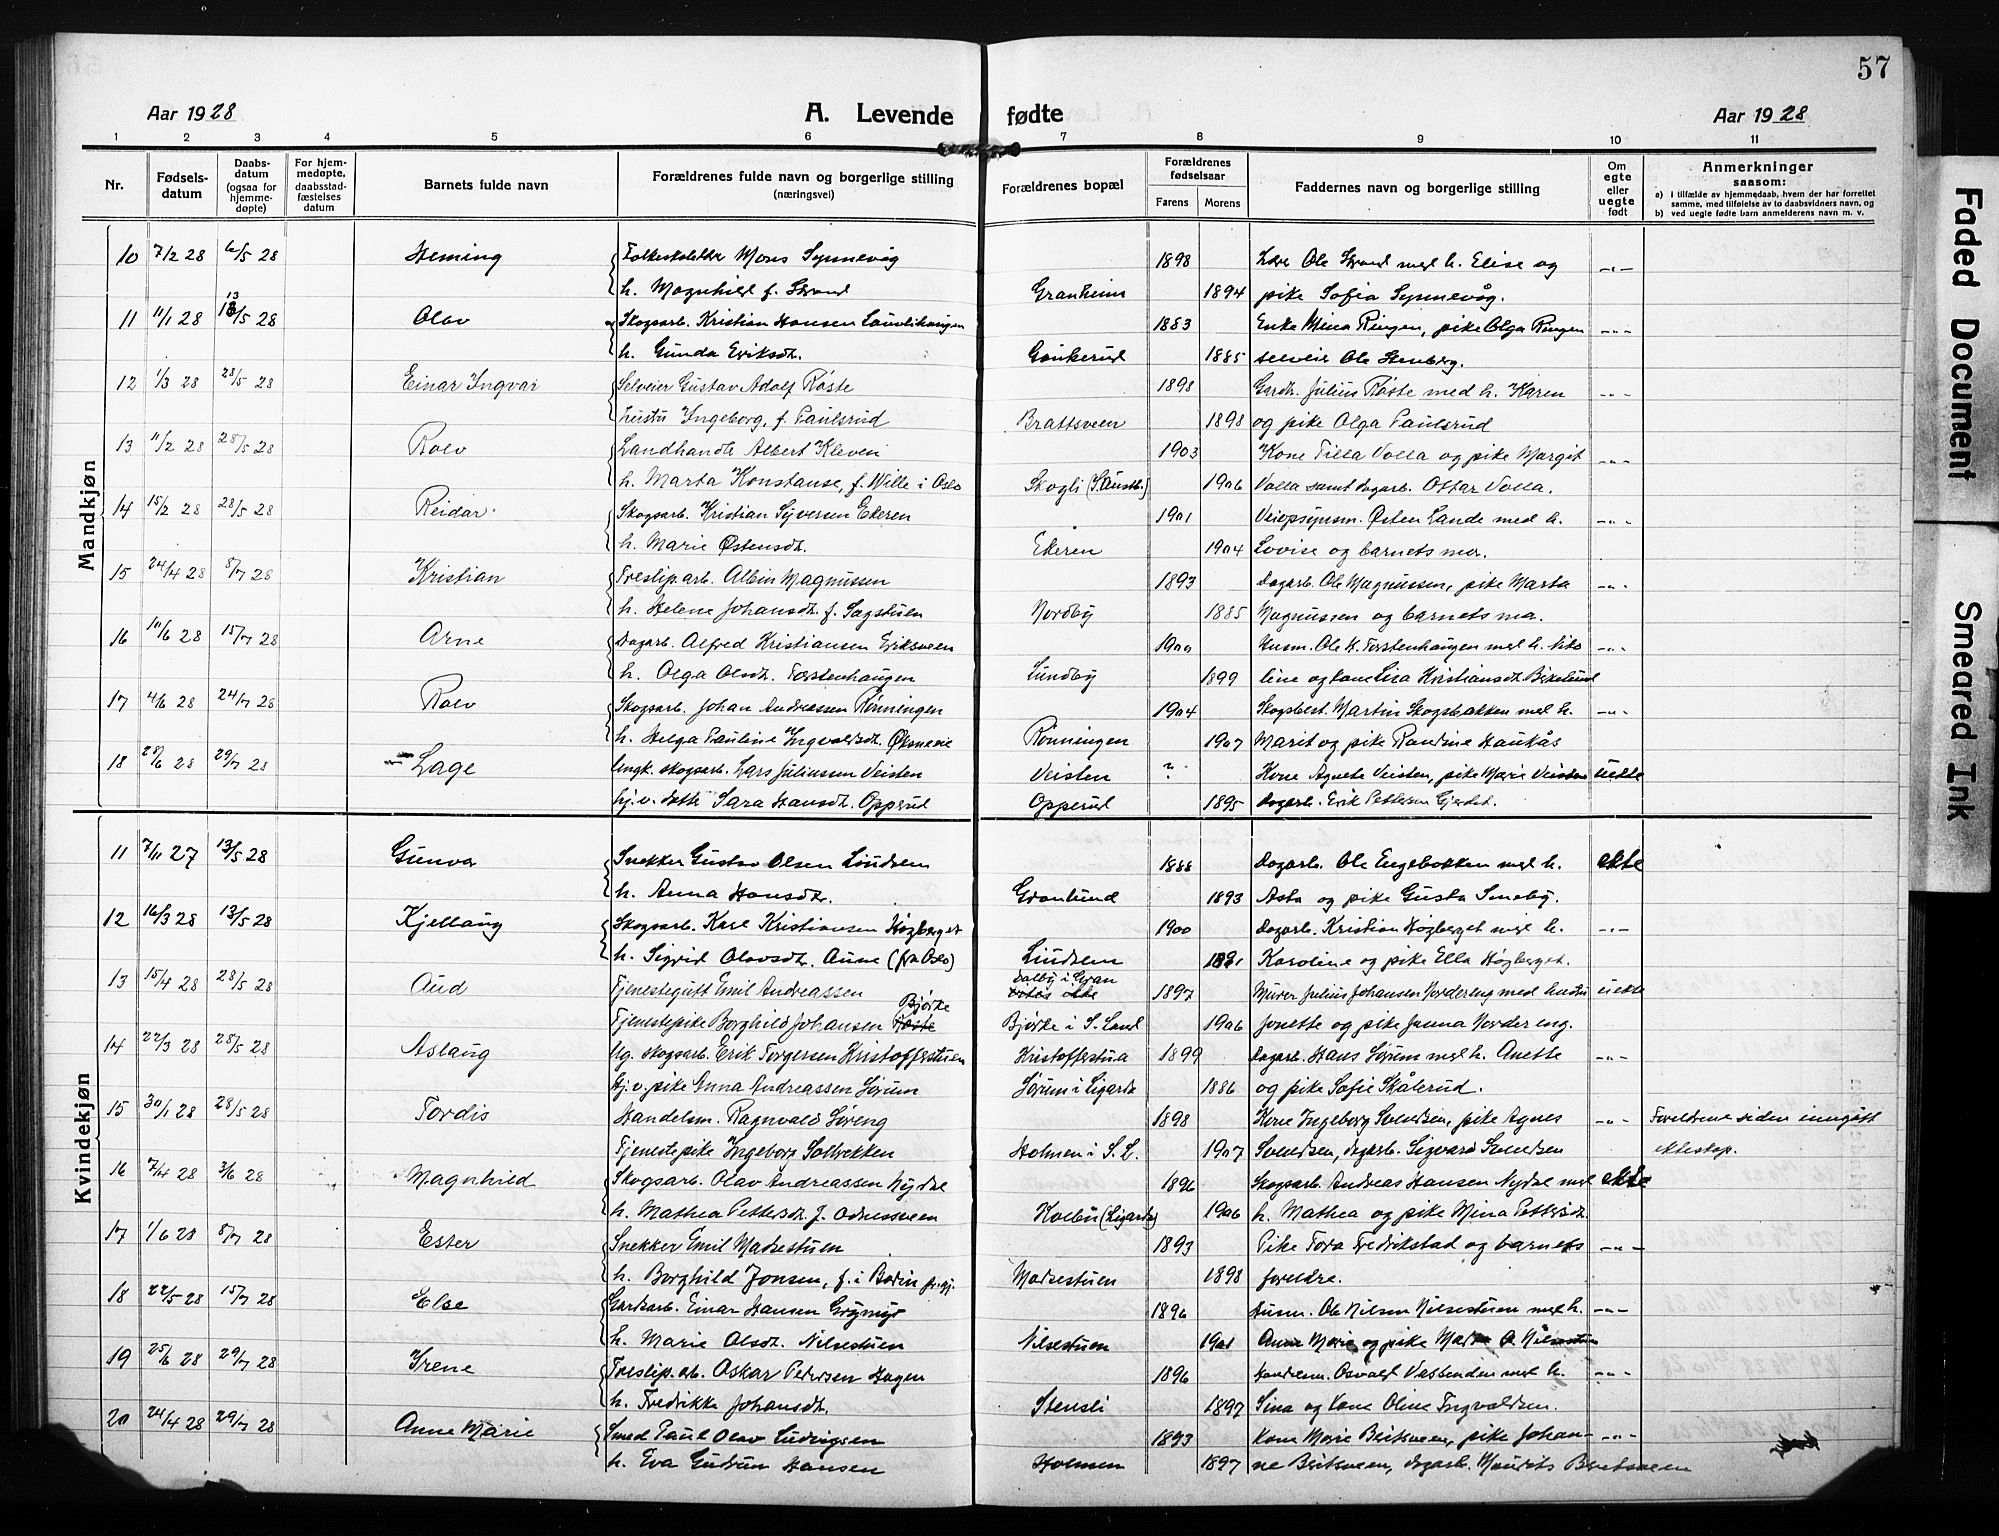 57
Aar 1928 A. Levende fødte Aar 1928
1 2 3 4 5 6 7 8 9 10 11
Nr. Fødsels-datum Daabs-datum (ogsaa for hjemme-døpte) For hjem-medøpte, daabsstad-fæstelses datum Barnets fulde navn Forældrenes fulde navn og borgerlige stilling (næringsvei) Forældrenes bopæl Forældrenes fødselsaar Farens Morens Faddernes navn og borgerlige stilling Om egte eller uegte født Anmerkninger saasom:
a) i tilfælde av hjemmedaab, hvem der har forrettet samme, med tilføielse av to daabsvidners navn, og
b) ved uegte fødte barn anmelderens navn m. v.
Mandkjøn
10 7/2 28 6/5 28 Heming Mons Synnevåg 1898 Ole Strand med h. Elise og -"-
h. Magnhild f. Strand Granheim 1894 pike Sofia Synnevåg.
11 11/1 28 13/5 28 Olav Skogsarb. Kristian Hansen 1883 Enke Mina Ringen, pike Olga Ringen -"-
h. Gunda Eriksdt. Gaukerud 1885 selveier Ole Stenberg.
12 1/3 28 28/5 28 Einar Ingvar Selveier Gustav Adolf Røste 1898 Gardb. Julius Røste med h. Karen -"-
hustru Ingeborg, f. Paulsrud Brattsveen 1898 og pike Olga Paulsrud
13 11/2 28 28/5 28 Rolv Landhandler Albert Kleven 1903 Kone Tilla Volla og pike Margit -"-
h. Marta Konstanse, f. Wille i Oslo Skogli 1906 Volla samt dagarb. Ottar Volla.
14 15/2 28 28/5 28 Reidar Skogsarb. Kristian Syversen Ekeren 1901 Veiopsynsm. Østen Lande med h. -"-
h. Marie Østensdt. Ekeren 1904 Lovise og barnets mor.
15 24/4 28 8/7 28 Kristian Tresliparb. Albin Magnussen 1893 Dagarb. Ole Magnussen, pike Marta -"-
h. Helene Johansdt. f. Sagstuen Nordby 1885 Magnussen og barnets mor.
16 11/6 28 15/7 28 Arne Dagarb. Alfred Kristiansen Eriksveen 1900 Husm. Ole K. Torstenhaugen med h. -"-
h. Olga Olsdt. Torstenhaugen Lundby 1899 line og kone Lisa Kristiansdt. Birkelund
17 4/6 28 24/7 28 Rolv Skogsarb. Johan Andreassen Rønningen 1904 Skogsbest. Martin Skogsbakken med h. -"-
h. Helga Pauline Ingvaldsdt. Rønningen 1907 Marit og pike Randine Haukås
18 28/6 28 29/7 28 Lage Ungk. skogsarb. Lars Juliussen Veisten Veisten ? Kone Agnete Veisten, pike Marie Veisten uekte
hj. v. datter Sara Hansdt. Opperud Opperud 1895 dagarb. Erik Pettersen Gjerdet.
Kvindekjøn
11 7/11 27 13/5 28 Gunvor Snekker Gustav Olsen Lindsem 1888 Dagarb. Ole Engebakken med h. ekte
h. Anna Hansdt. Granlund 1893 Asta og pike Gusta Smeby.
12 16/3 28 13/5 28 Kjellaug Skogsarb. Karl Kristiansen Høgberget 1900 Dagarb. Kristian Høgberget med h. -"-
h. Sigrid Olavsdt. Aune (fra Oslo) Lindsem Karoline og pike Ella Høgberget.
13 15/4 28 28/5 28 Aud Tjenestegutt Emil Andreassen Dalby i Gran 1897 Murer Julius Johansen Nordereng med hustru uekte
Tjenestepike Borghild Johansen Bjørke Bjørke i S. Land 1906 Jonette og pike Jenna Nordereng.
14 22/3 28 28/5 28 Aslaug Ug. skogsarb. Erik Torgersen Kristofferstuen Kristofferstua 1899 Dagarb. Hans Sørum med h. Anette -"-
Hj. v. pike Anna Andreassen Sørum Sørum i Ligarda 1886 og pike Sofie Skålerud.
15 30/1 28 28/5 28 Tordis Handelsm. Ragnvald Søreng 1898 Kone Ingeborg Svendsen, pike Agnes -"- Foreldrene siden inngått
Tjenestepike Ingeborg Solbrekken Holmen i S. L. 1907 Svendsen, dagarb. Sigvard Svendsen ektesk[ap].
16 7/4 28 3/6 28 Magnhild Skogsarb. Olav Andreassen Nydal 1896 Skogsarb. Andreas Hansen Nydal med ekte
h. Mathea Pettersdt. f. Odnessveen Kolbu (Ligarda) 1906 h. Mathea og pike Mina Pettersdt.
17 1/6 28 8/7 28 Ester Snekker Emil Madsestuen 1893 Pike Tora Fredrikstad og barnets -"-
h. Borghild Jonsen, f. i Bodin Madsestuen 1898 foreldre.
18 22/5 28 15/7 28 Else Gardsarb. Einar Hansen Grymyr 1896 Husm. Ole Nilsen Nilsestuen med h. -"-
h. Marie Olsdt. Nilsestuen Nilsestuen 1901 Anne Marie og pike Nilsestuen
19 25/6 28 29/7 28 Irene Treslip. arb. Oskar Pedersen Hagen 1896 Handelsm. Osvald Vassenden med h. -"-
h. Fredrikke Johansdt. Stensli 1897 Sina og kone Oline Ingvaldsen.
20 24/4 28 29/7 28 Anne Marie Smed Paul Olav Ludvigsen 1893 Kone Marie Beitsveen, pike Johan- -"-
h. Eva Gudrun Hansen Holmen 1897 ne Beitsveen, dagarb. Maurits Beitsveen
Faded Document
Smeared Ink